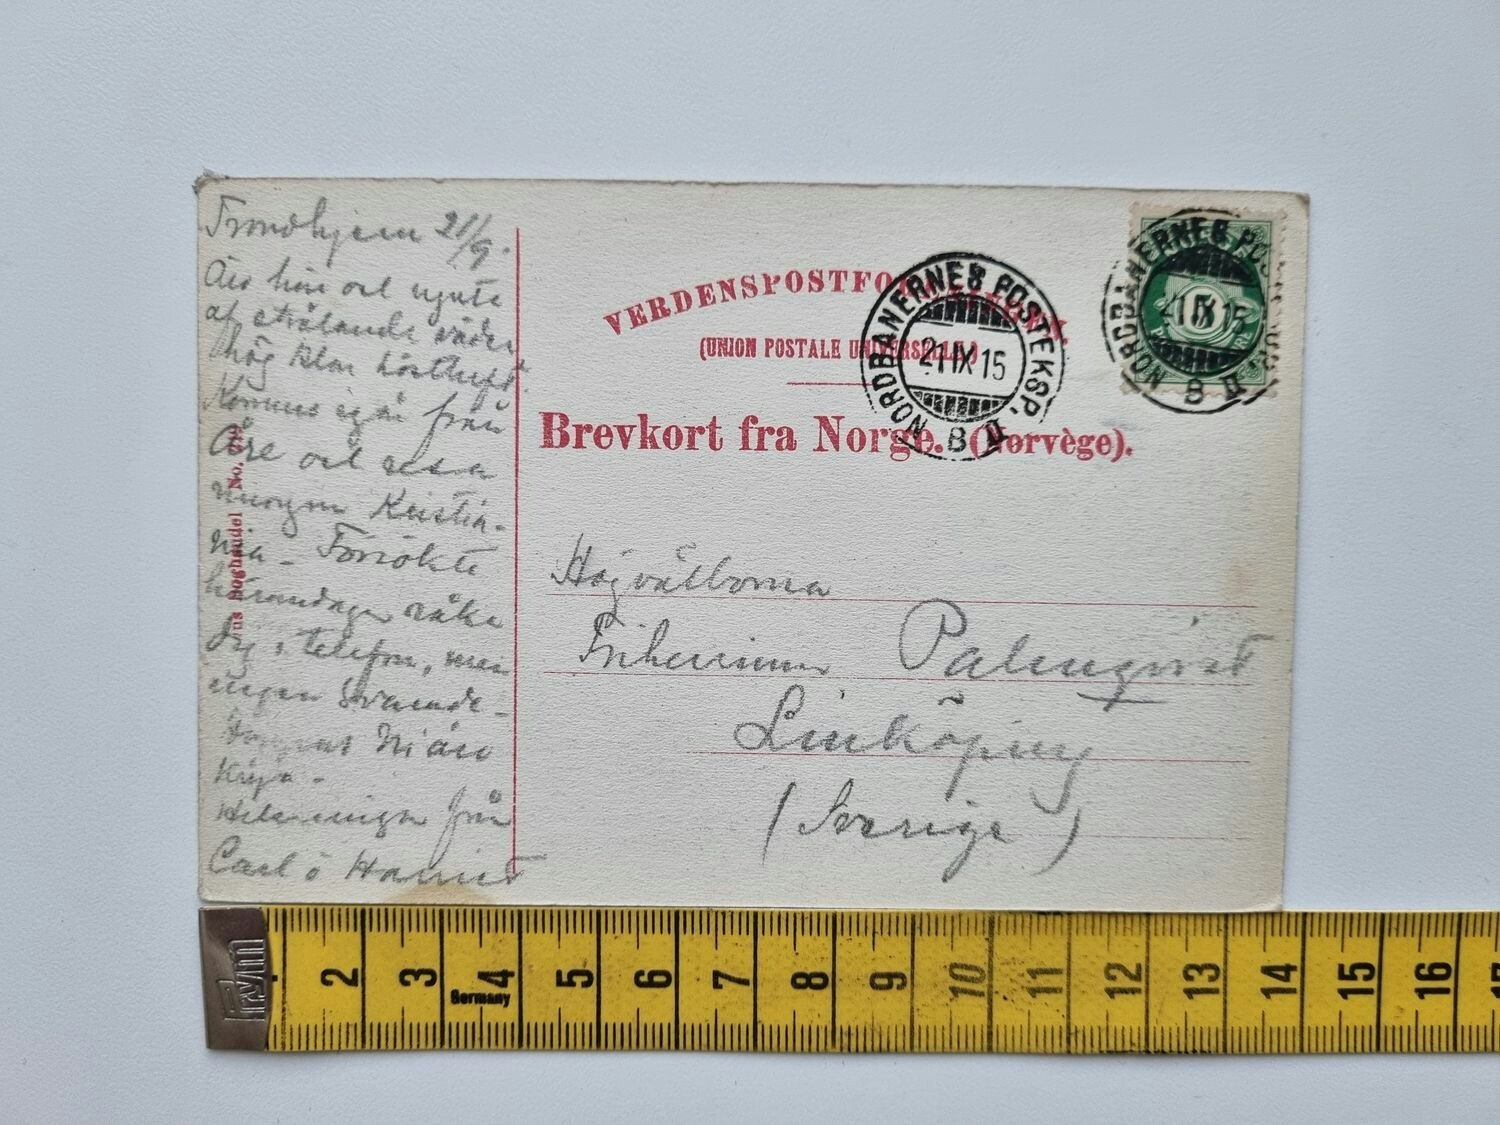 Trondhjem 21/9.
Äro här och njuta
af strålande väder
hög klar höstluft.
Kommo igår från
Åre och resa
morgon Kristia-
nia - Försökte
häromdagen råka
Dig i telefon, men
ingen svarade -
Niáro
Krya -
Helsningar från
Carl o Harriet
No.
Boghandel
VERDENSPOSTFO
(UNION POSTALE UNIVERSELLE)
Brevkort fra Norge. (Norvège).
NORDBANERNES POSTEKSP. B II
21 IX 15
NORDBANERNES PO
21 IX 15
B II
5
ØRE
Högvälborna
Friherrinnan Palmqvist
Linköping
(Sverige)
Prym
2 3 4 5 6 7 8 9 10 11 12 13 14 15 16
Germany